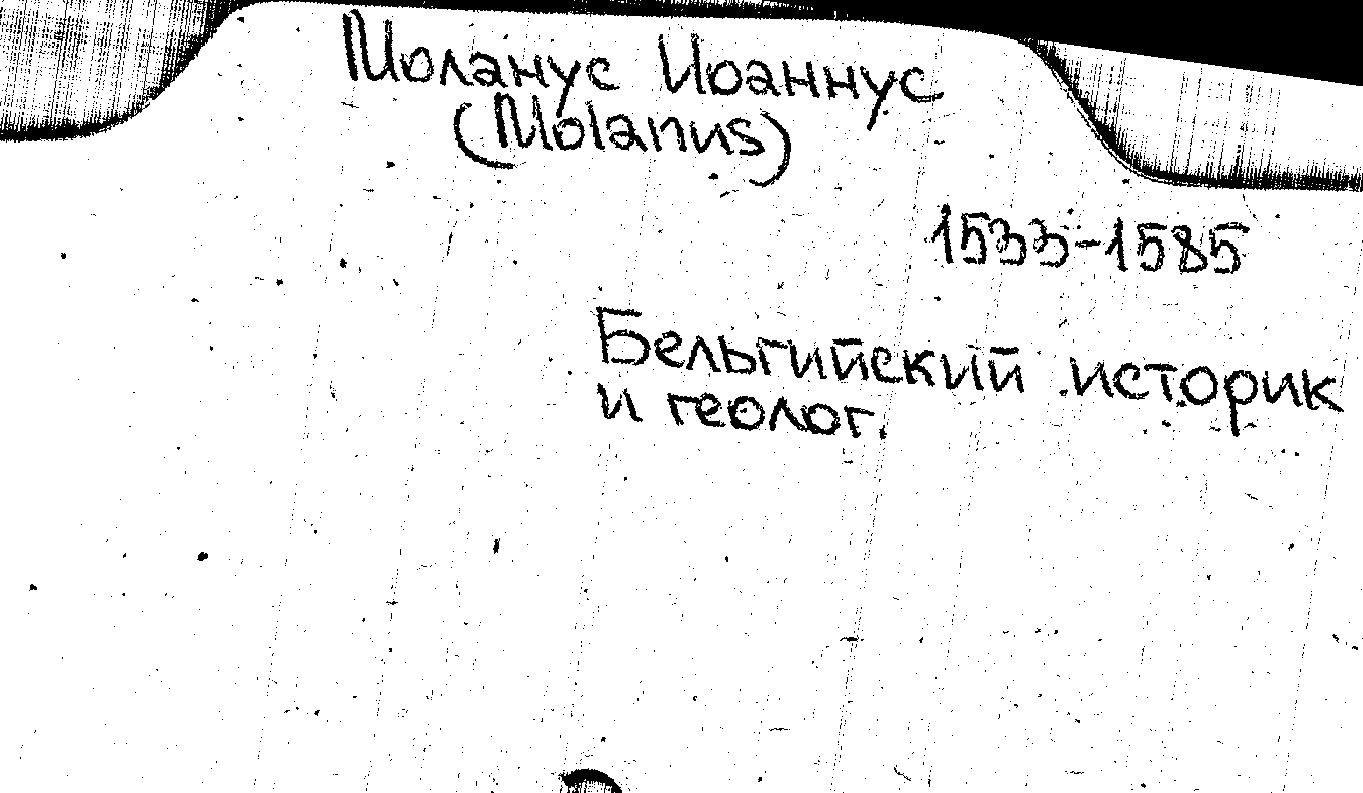 Моланус Иоаннус
(Molanus)
1533-1585
Бельгийский историк
и геолог.